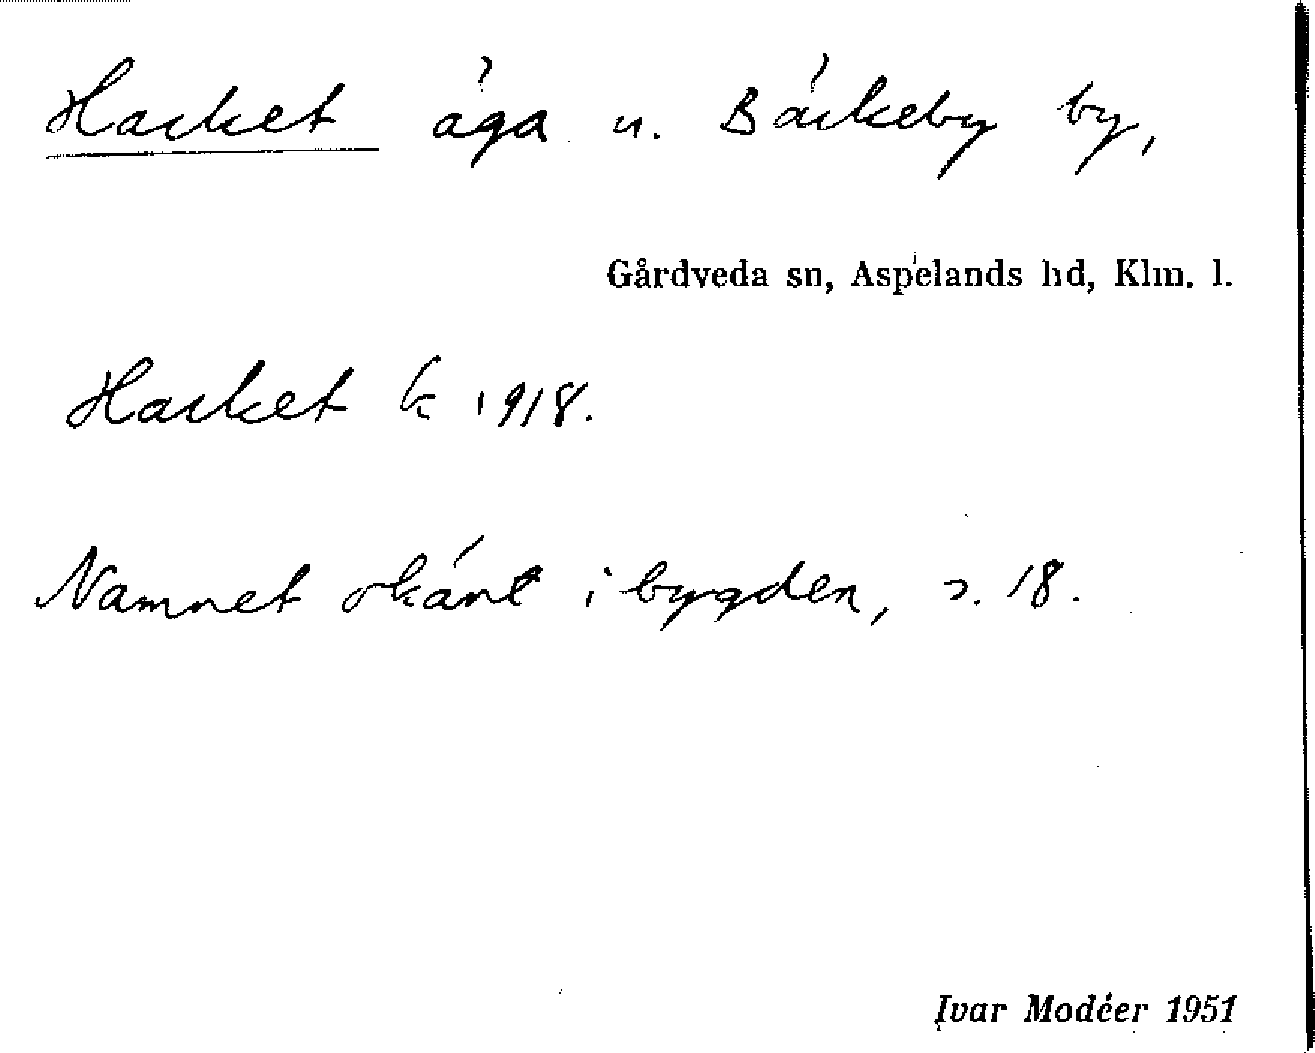 Hacket äga u. Bäckeby by,
Gårdveda sn, Aspelands hd, Klm. l.
Hacket k 1918.
Namnet okänt i bygden, s. 18.
Ivar Modéer 1951